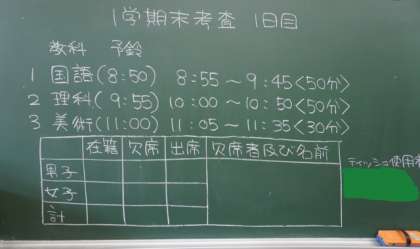 1学期末考査 1日目
教科 予鈴
1 国語(8:50) 8:55～9:45<50分>
2 理科(9:55) 10:00～10:50<50分>
3 美術(11:00) 11:05～11:35<30分>
在籍 欠席 出席 欠席者及び名前
男子
女子
計
ティッシュ使用者